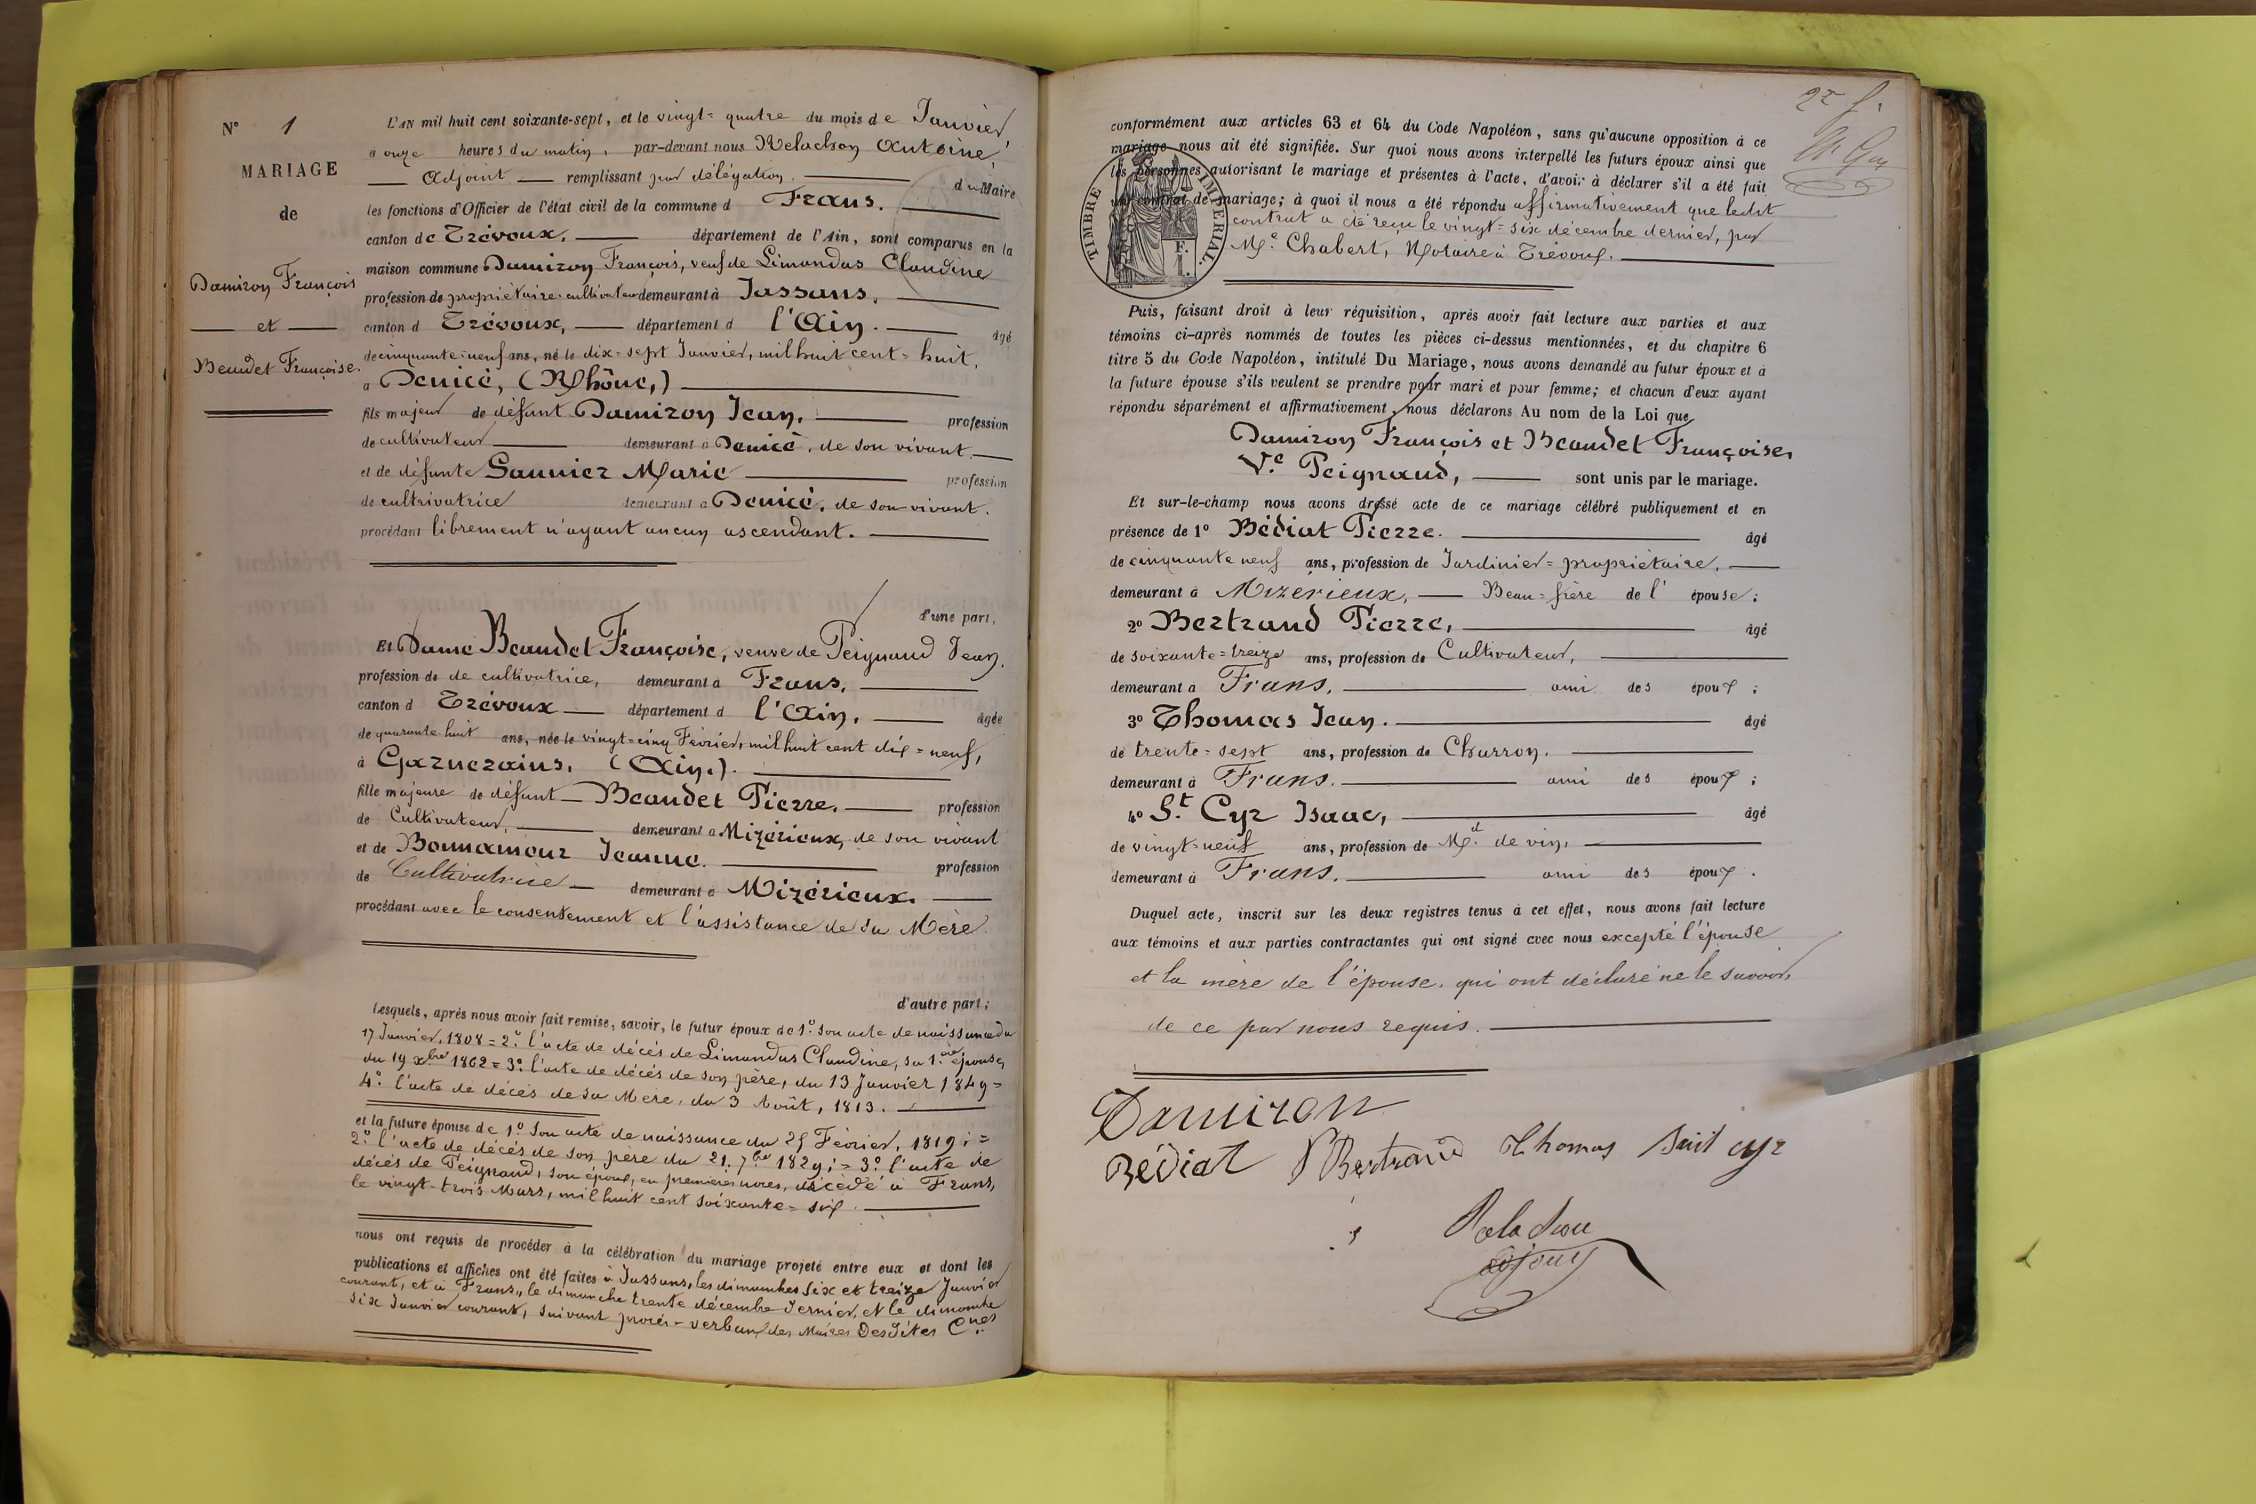 N° 1
MARIAGE
de
Damiron François
et
Beaudet Françoise.
L'AN mil huit cent soixante-sept, et le vingt=quatre du mois de Janvier,
a onze heures du matin, par-devant nous Rélachon Antoine,
Adjoint remplissant par délégation du Maire
les fonctions d'Officier de l'état civil de la commune d Frans.
canton de Trévoux, département de l'Ain, sont comparus en la
maison commune Damiron François, veuf de Limandas Claudine
profession de propriétaire-cultivateur demeurant à Jassans,
canton d Trévoux, département d l'Ain. âgé
de cinquante=neuf ans, né le dix=sept Janvier, mil huit cent=huit,
a Denicé, (Rhône,)
fils majeur de défunt Damiron Jean, profession
de cultivateur demeurant à Denicé, de son vivant
et de défunte Saunier Marie profession
de cultivatrice demeurant a Denicé, de son vivant.
procédant librement n'ayant aucun ascendant.
d'une part,
Et Dame Beaudet Françoise, veuve de Peignaud Jean,
profession de de cultivatrice, demeurant a Frans,
canton d Trévoux département d l'Ain, âgée
de quarante huit ans, née le vingt=cinq Février, mil huit cent dix=neuf,
à Garnerains, (Ain,).
fille majeure de défunt Beaudet Pierre, profession
de Cultivateur, demeurant a Mizérieux, de son vivant
et de Bonnamour Jeanne. profession
de Cultivatrice demeurant à Mizérieux.
procédant avec le consentement et l'assistance de sa Mère
d'autre part;
Lesquels, après nous avoir fait remise, savoir, le futur époux de 1° son acte de naissance du
17 Janvier, 1808 = 2° l'acte de décés de Limandas Claudine, sa 1ère épouse,
du 19 xbre 1862 = 3° l'acte de décés de son père, du 13 Janvier 1849=
4° l'acte de décés de sa Mere, du 3 Août, 1813.
et la future épouse de 1° Son acte de naissance du 25 Février, 1819; =
2° l'acte de décés de son père du 21. 7bre 1829; = 3° l'acte de
décés de Peignaud, son époux, en premieres noces, décédé à Frans,
le vingt-trois Mars, mil huit cent soixante=six.
nous ont requis de procéder à la célébration du mariage projeté entre eux et dont les
publications et affiches ont été faites à Jassans, les dimanches six et treize Janvier
courant, et à Frans, le dimanche trente décembre dernier, et le dimanche
six Janvier courant, suivant procés-verbaux des Maires Desdites Cnes
2e f.
conformément aux articles 63 et 64 du Code Napoléon, sans qu'aucune opposition à ce
mariage nous ait été signifiée. Sur quoi nous avons interpellé les futurs époux ainsi que
les personnes autorisant le mariage et présentes à l'acte, d'avoir à déclarer s'il a été fait
un contrat de mariage; à quoi il nous a été répondu affirmativement que ledit
contrat a été reçu le vingt=six décembre dernier, par
Me Chabert, Notaire à Trévoux.
TIMBRE IMPERIAL.
F.
1.
Puis, faisant droit à leur réquisition, après avoir fait lecture aux parties et aux
témoins ci-après nommés de toutes les pièces ci-dessus mentionnées, et du chapitre 6
titre 5 du Code Napoléon, intitulé Du Mariage, nous avons demandé au futur époux et à
la future épouse s'ils veulent se prendre pour mari et pour femme; et chacun d'eux ayant
répondu séparément et affirmativement, nous déclarons Au nom de la Loi que
Damiron François et Beaudet Françoise,
Ve Peignaud, sont unis par le mariage.
Et sur-le-champ nous avons dressé acte de ce mariage célébré publiquement et en
présence de 1° Bédiat Pierre. âgé
de cinquante neuf ans, profession de Jardinier=propriétaire,
demeurant à Mizérieux, Beau=frère de l' épouse;
2° Bertrand Pierre, âgé
de soixante=treize ans, profession de Cultivateur,
demeurant a Frans, ami des époux;
3° Thomas Jean. âgé
de trente=sept ans, profession de Charron.
demeurant à Frans. ami des époux;
4° St. Cyr Isaac, âgé
de vingt=neuf ans, profession de Md. de vin,
demeurant à Frans. ami des époux.
Duquel acte, inscrit sur les deux registres tenus à cet effet, nous avons fait lecture
aux témoins et aux parties contractantes qui ont signé avec nous excepté l'épouse
et la mère de l'épouse, qui ont déclaré ne le savoir,
de ce par nous requis.
Damiron
Bédiat P Bertrand Thomas Saint cyr
Relachon
adjoint